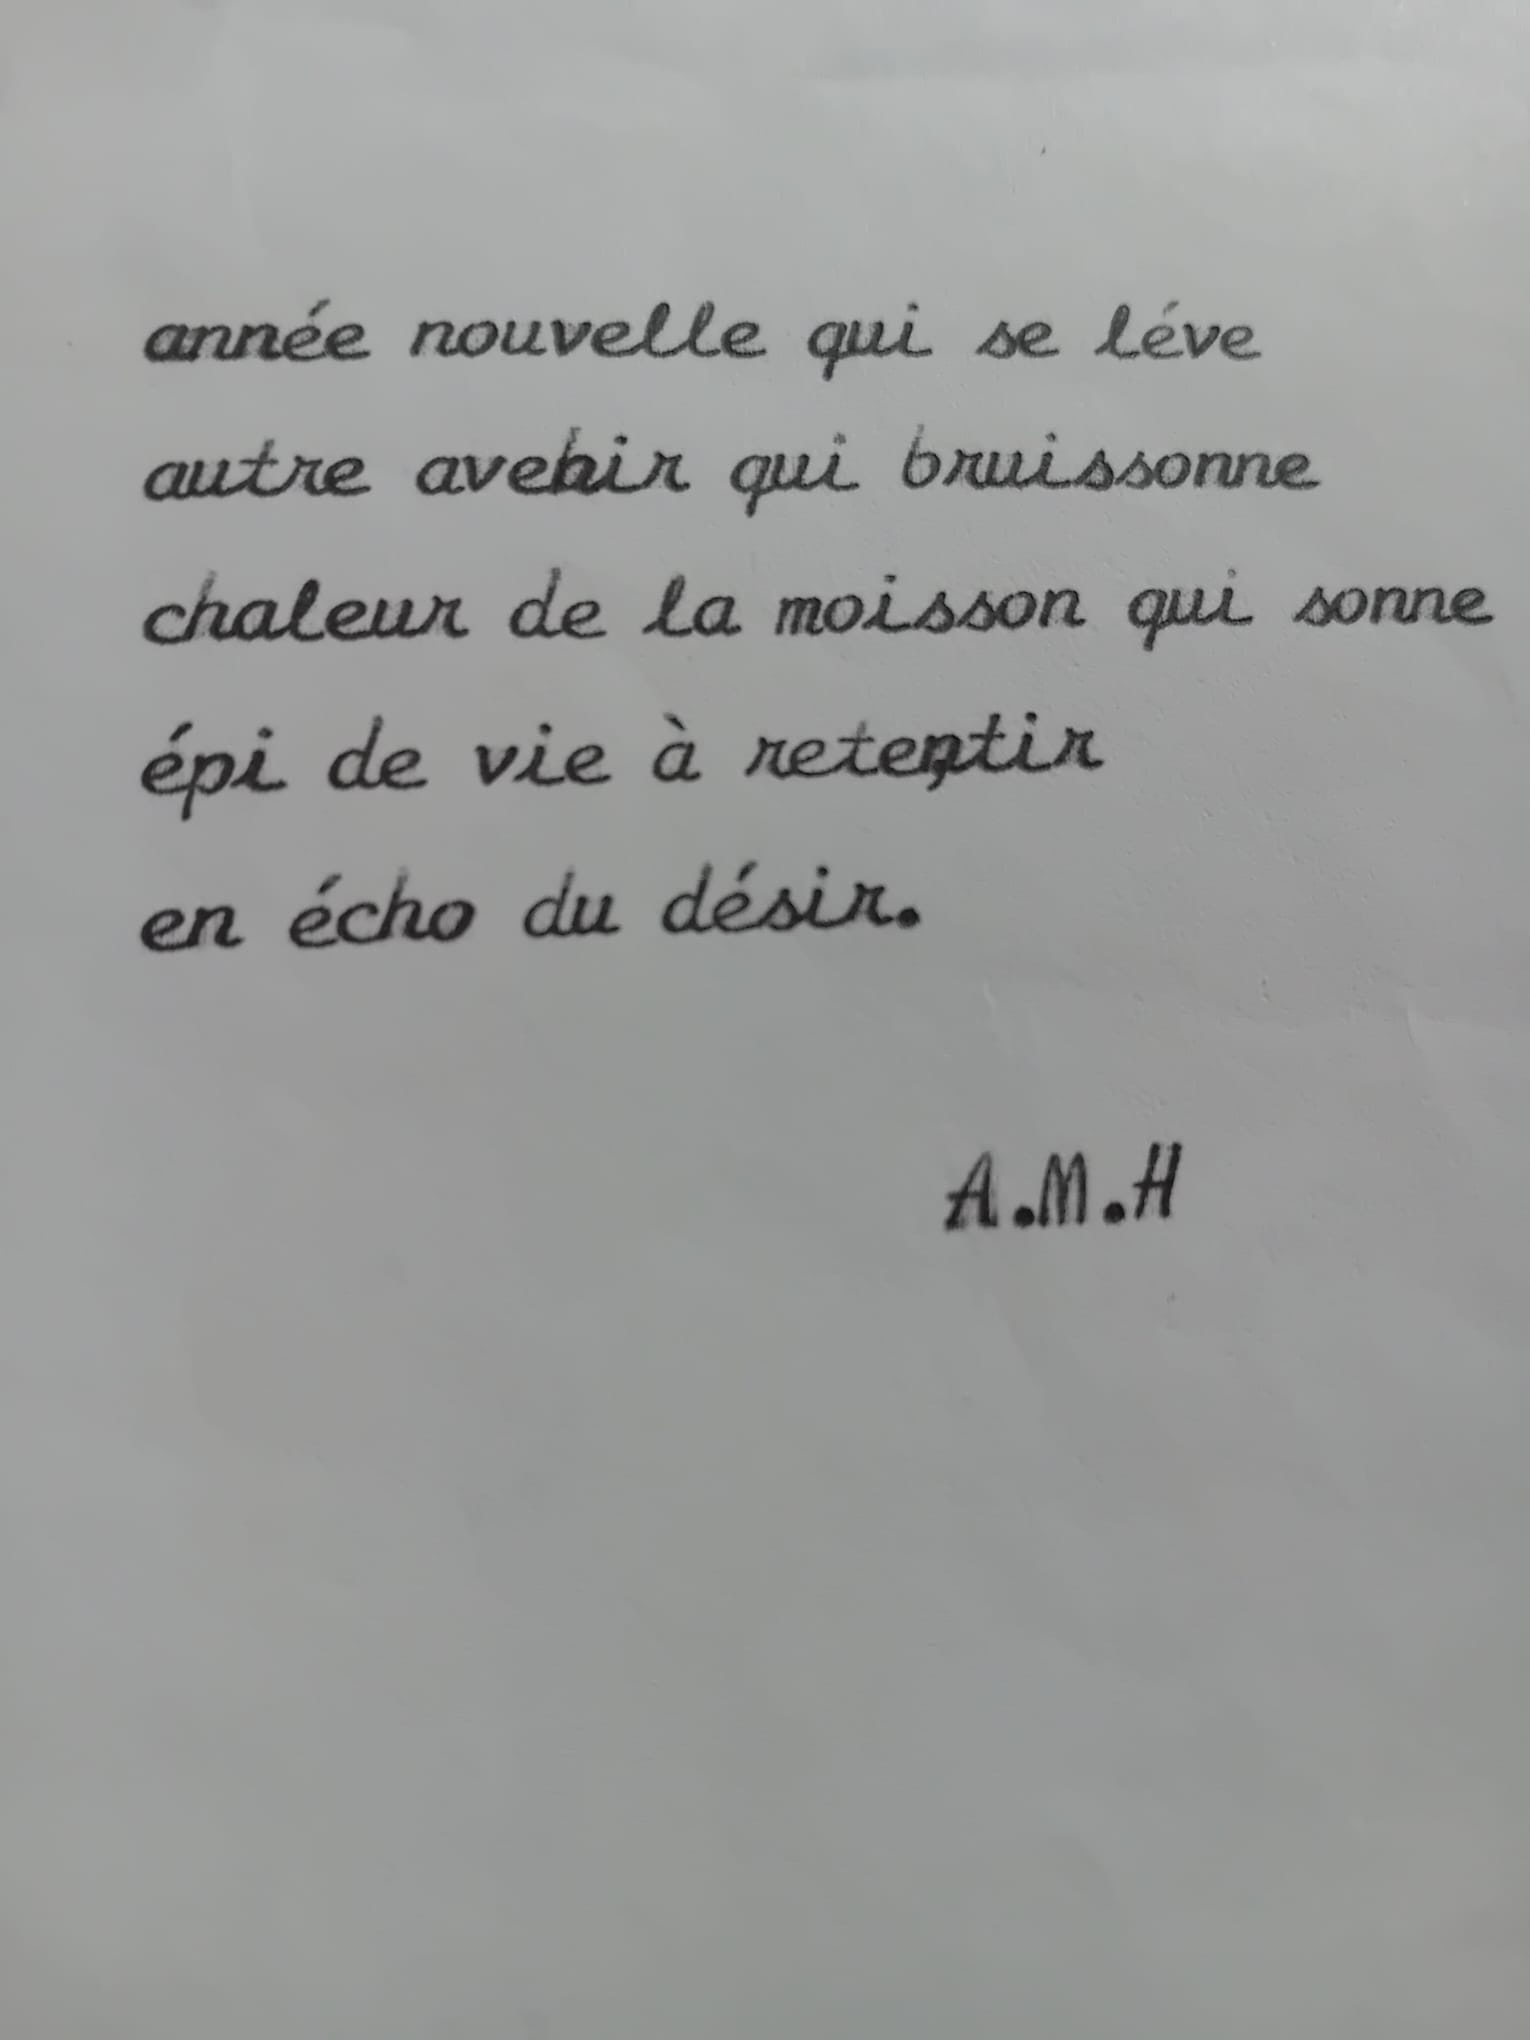 année nouvelle qui se léve
autre avenir qui bruissonne
chaleur de la moisson qui sonne
épi de vie à retentir
en écho du désir.
A.M.H